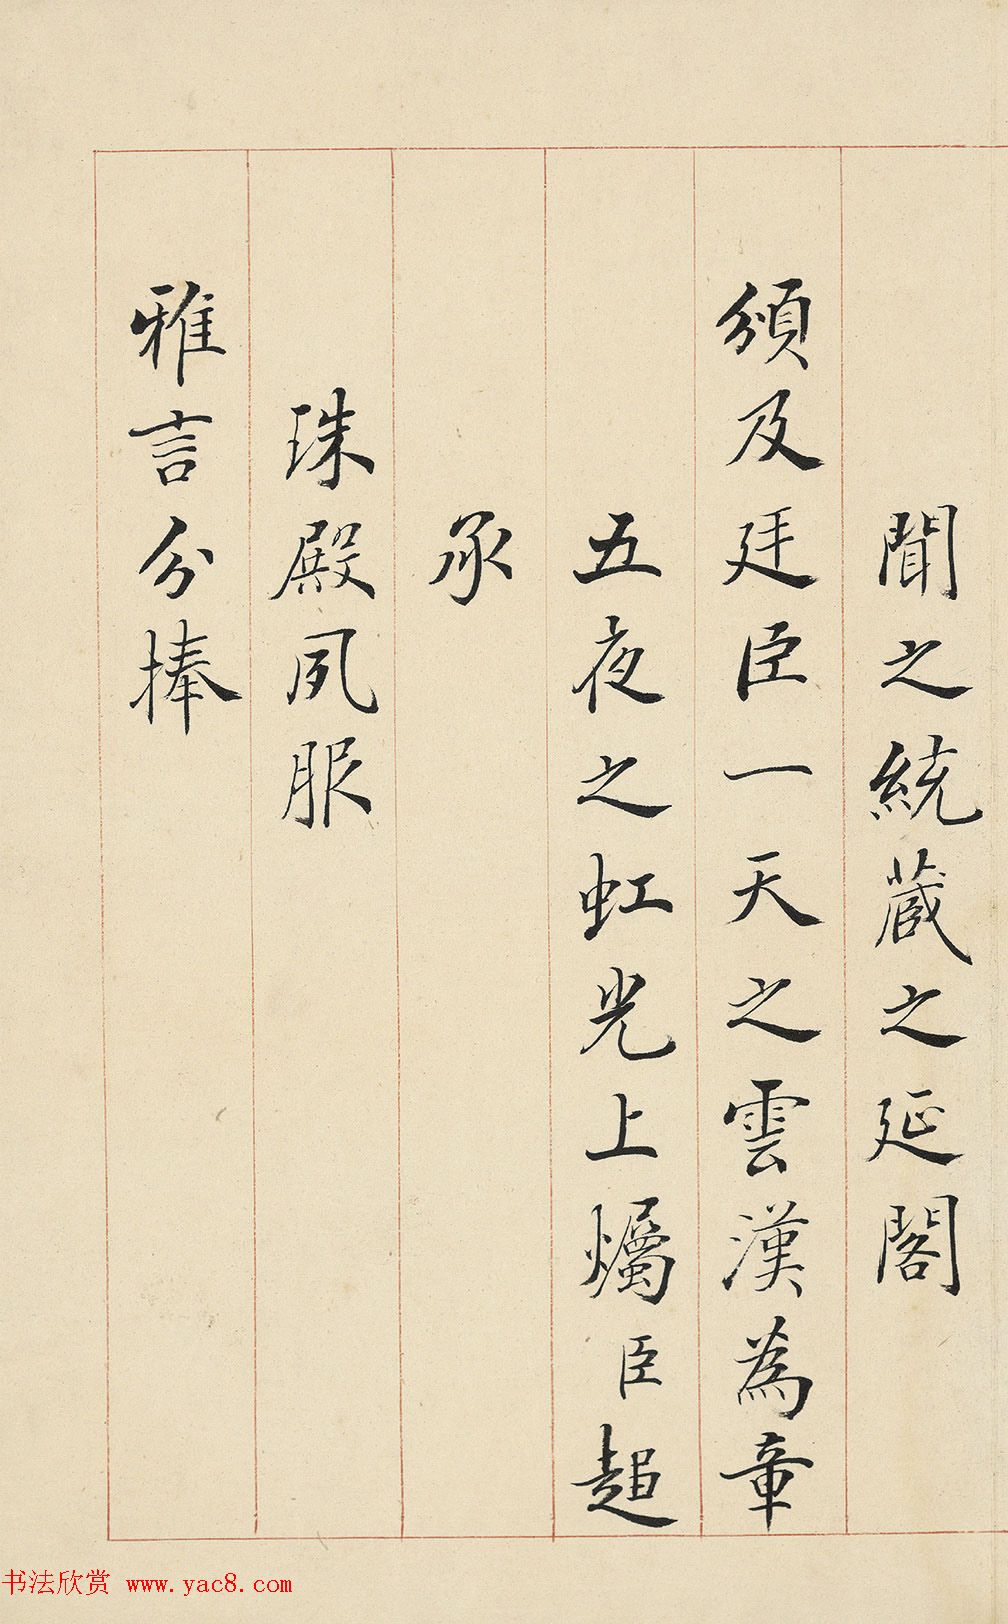 聞之統蔵之延閣
頒及廷臣一天之雲漢為章
五夜之虹光上爥臣趨
承
珠殿夙服
雅言分捧
书法欣赏 www.yac8.com